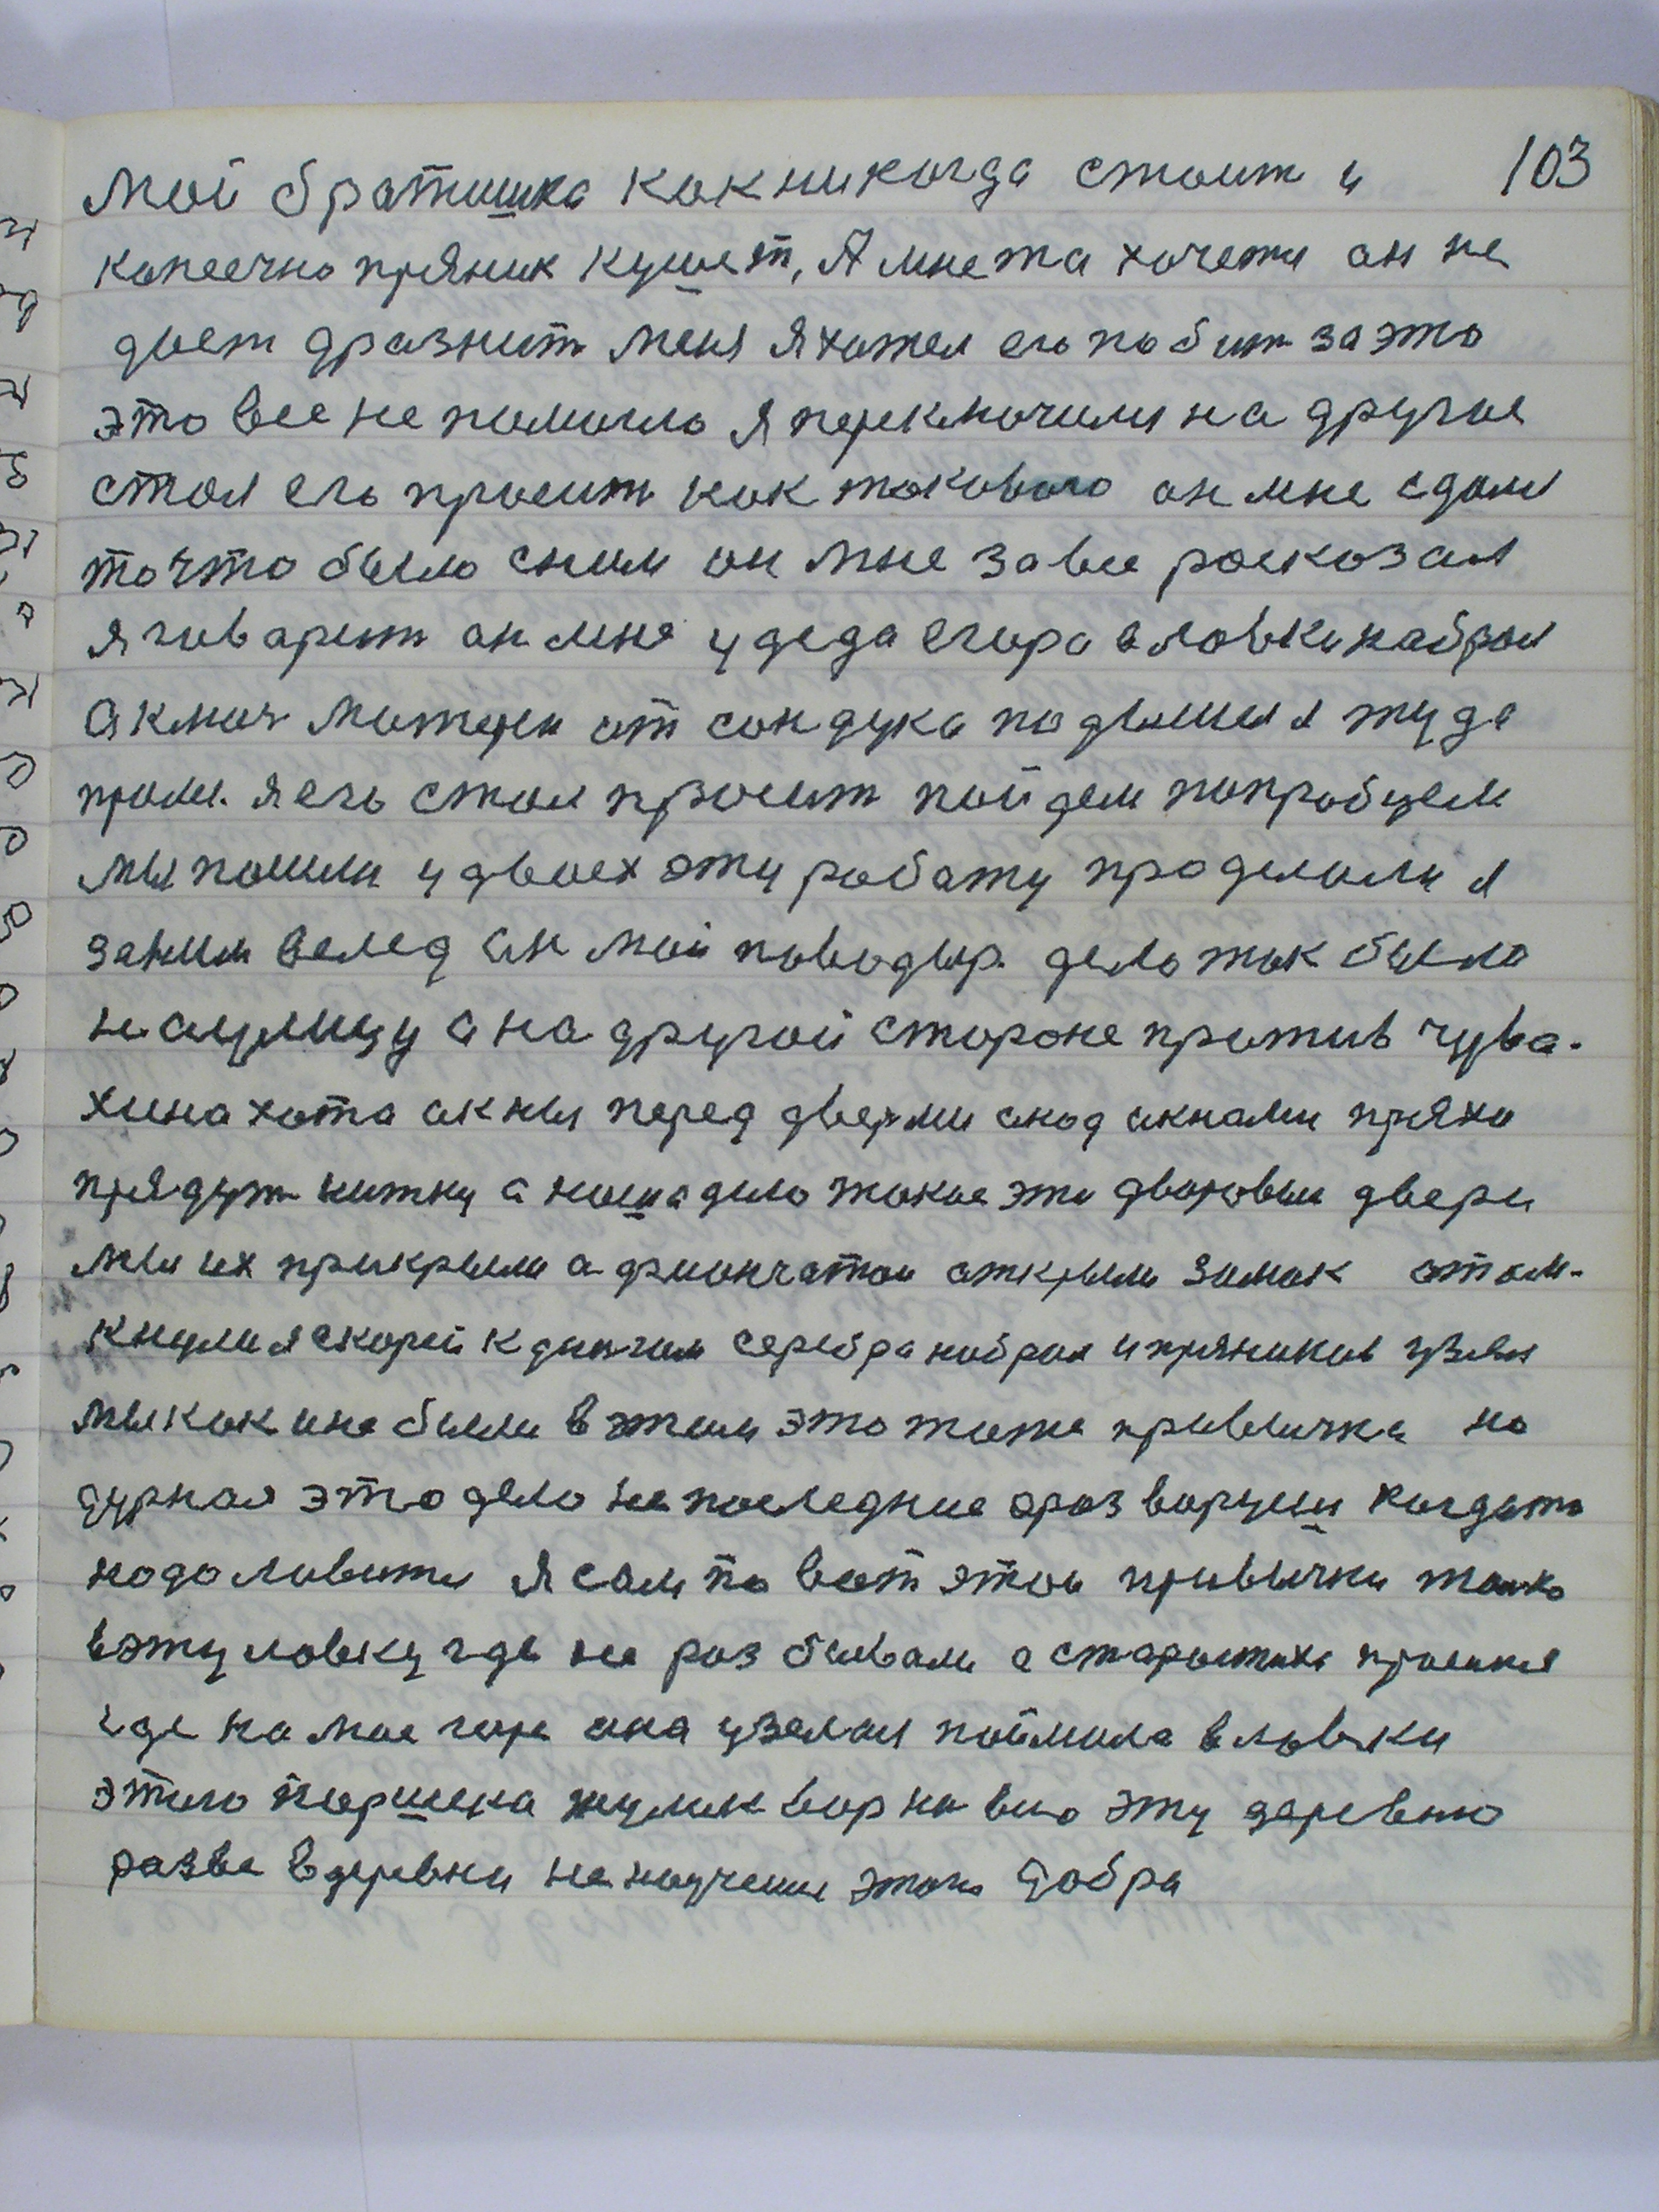 103
Мой братишка как никогда стоит и
копеечно пряник кушает, А мне та хочетя он не
дает дразнит меня я хотел его побит за это
это все не помогло я переключился на другое
стал его просит как такового он мне сдался
то что было сним он мне завсе росказал
я говарит он мне у деда егора в ловки набрал
а ключ матери от сондука подошел я туда
пролез. я его стал просит пойдем попробуем
мы пошли у двоех эту работу проделали я
заним велед он мой поводыр. дело так было
на улицу а на другой стороне против чува-
хина хата окны перед дверми а под окнами пряхи
прядут нитку а наша дело такое эти дворовые двери
мы их прикрыли а фиончатои открыли замок отом-
кнули я скорей к денгам серебра набрал и пряников узял
мы как и не были в этом это тоже привычка но
дурная это дело не последние раз воруеш когдато
надо ловится я сам по вот этой привычки толко
в эту ловку где не раз бывали а старостиха
где на мое горе она узялась поймала в ловки
этого Паршека жулик вор на всю эту деревню
разве в деревни не научешся этого добра